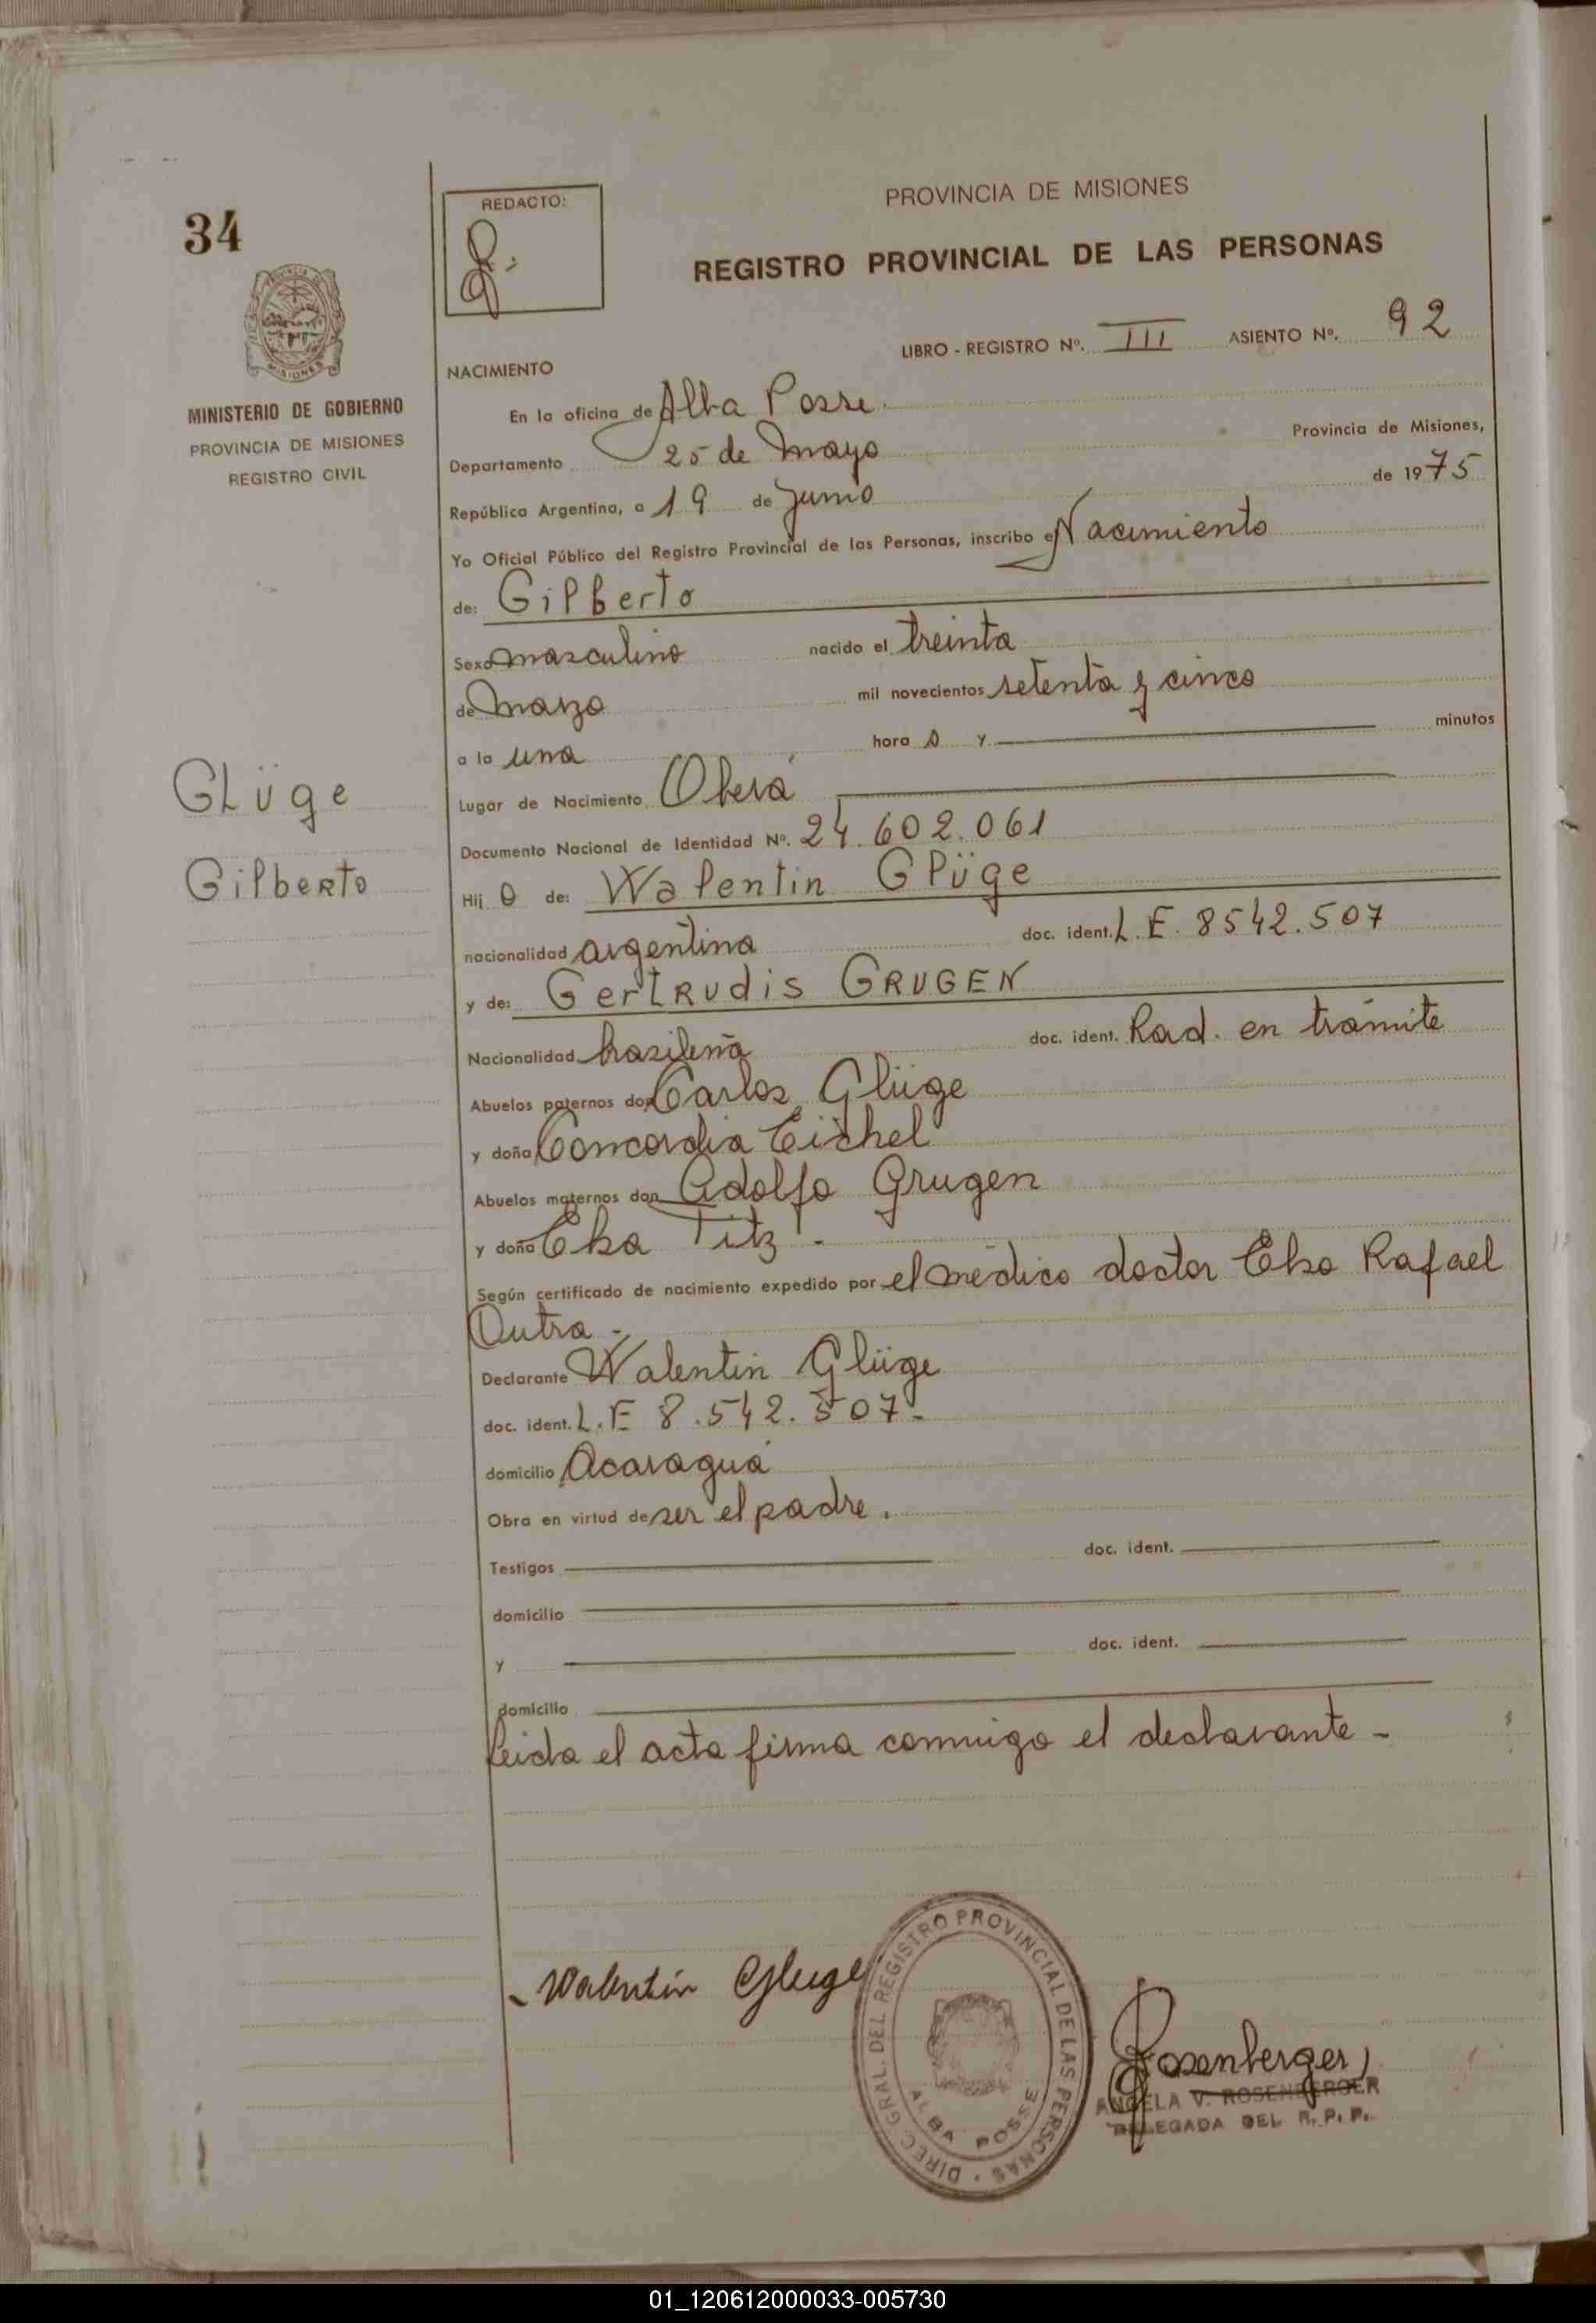 34
PROVINCIA DE MISIONES
MINISTERIO DE GOBIERNO
PROVINCIA DE MISIONES
REGISTRO CIVIL
REDACTO:
PROVINCIA DE MISIONES
REGISTRO PROVINCIAL DE LAS PERSONAS
LIBRO - REGISTRO Nº. III ASIENTO Nº. 92
NACIMIENTO
En la oficina de Alba Posse.
Departamento 25 de Mayo Provincia de Misiones,
República Argentina, a 19 de Junio de 1975
Yo Oficial Público del Registro Provincial de las Personas, inscribo el Nacimiento
de: Gilberto
Sexo masculino nacido el treinta
de marzo mil novecientos setenta y cinco
a la una hora s y minutos
Lugar de Nacimiento Oberá
Documento Nacional de Identidad Nº. 24.602.061
Hij o de: Walentin Glüge
nacionalidad argentina doc. ident. L.E. 8542.507
y de: Gertrudis GRUGEN
Nacionalidad brasileña doc. ident. Rad. en trámite
Abuelos paternos don Carlos Glüge
y doña Concordia Eichel
Abuelos maternos don Adolfo Grugen
y doña Elsa Titz -
Según certificado de nacimiento expedido por el médico doctor Elso Rafael
Dutra -
Declarante Walentin Glüge
doc. ident. L.E 8.542.507-
domicilio Acaraguá
Obra en virtud de ser el padre.
Testigos doc. ident.
domicilio
y doc. ident.
domicilio
Leida el acta firma conmigo el declarante -
GLüge
Gilberto
Walentin Gluge
DIREC. GRAL. DEL REGISTRO PROVINCIAL DE LAS PERSONAS
ALBA POSSE
Rosenberger
ANGELA V. ROSENBERGER
DELEGADA DEL R.P.P.
01_120612000033-005730